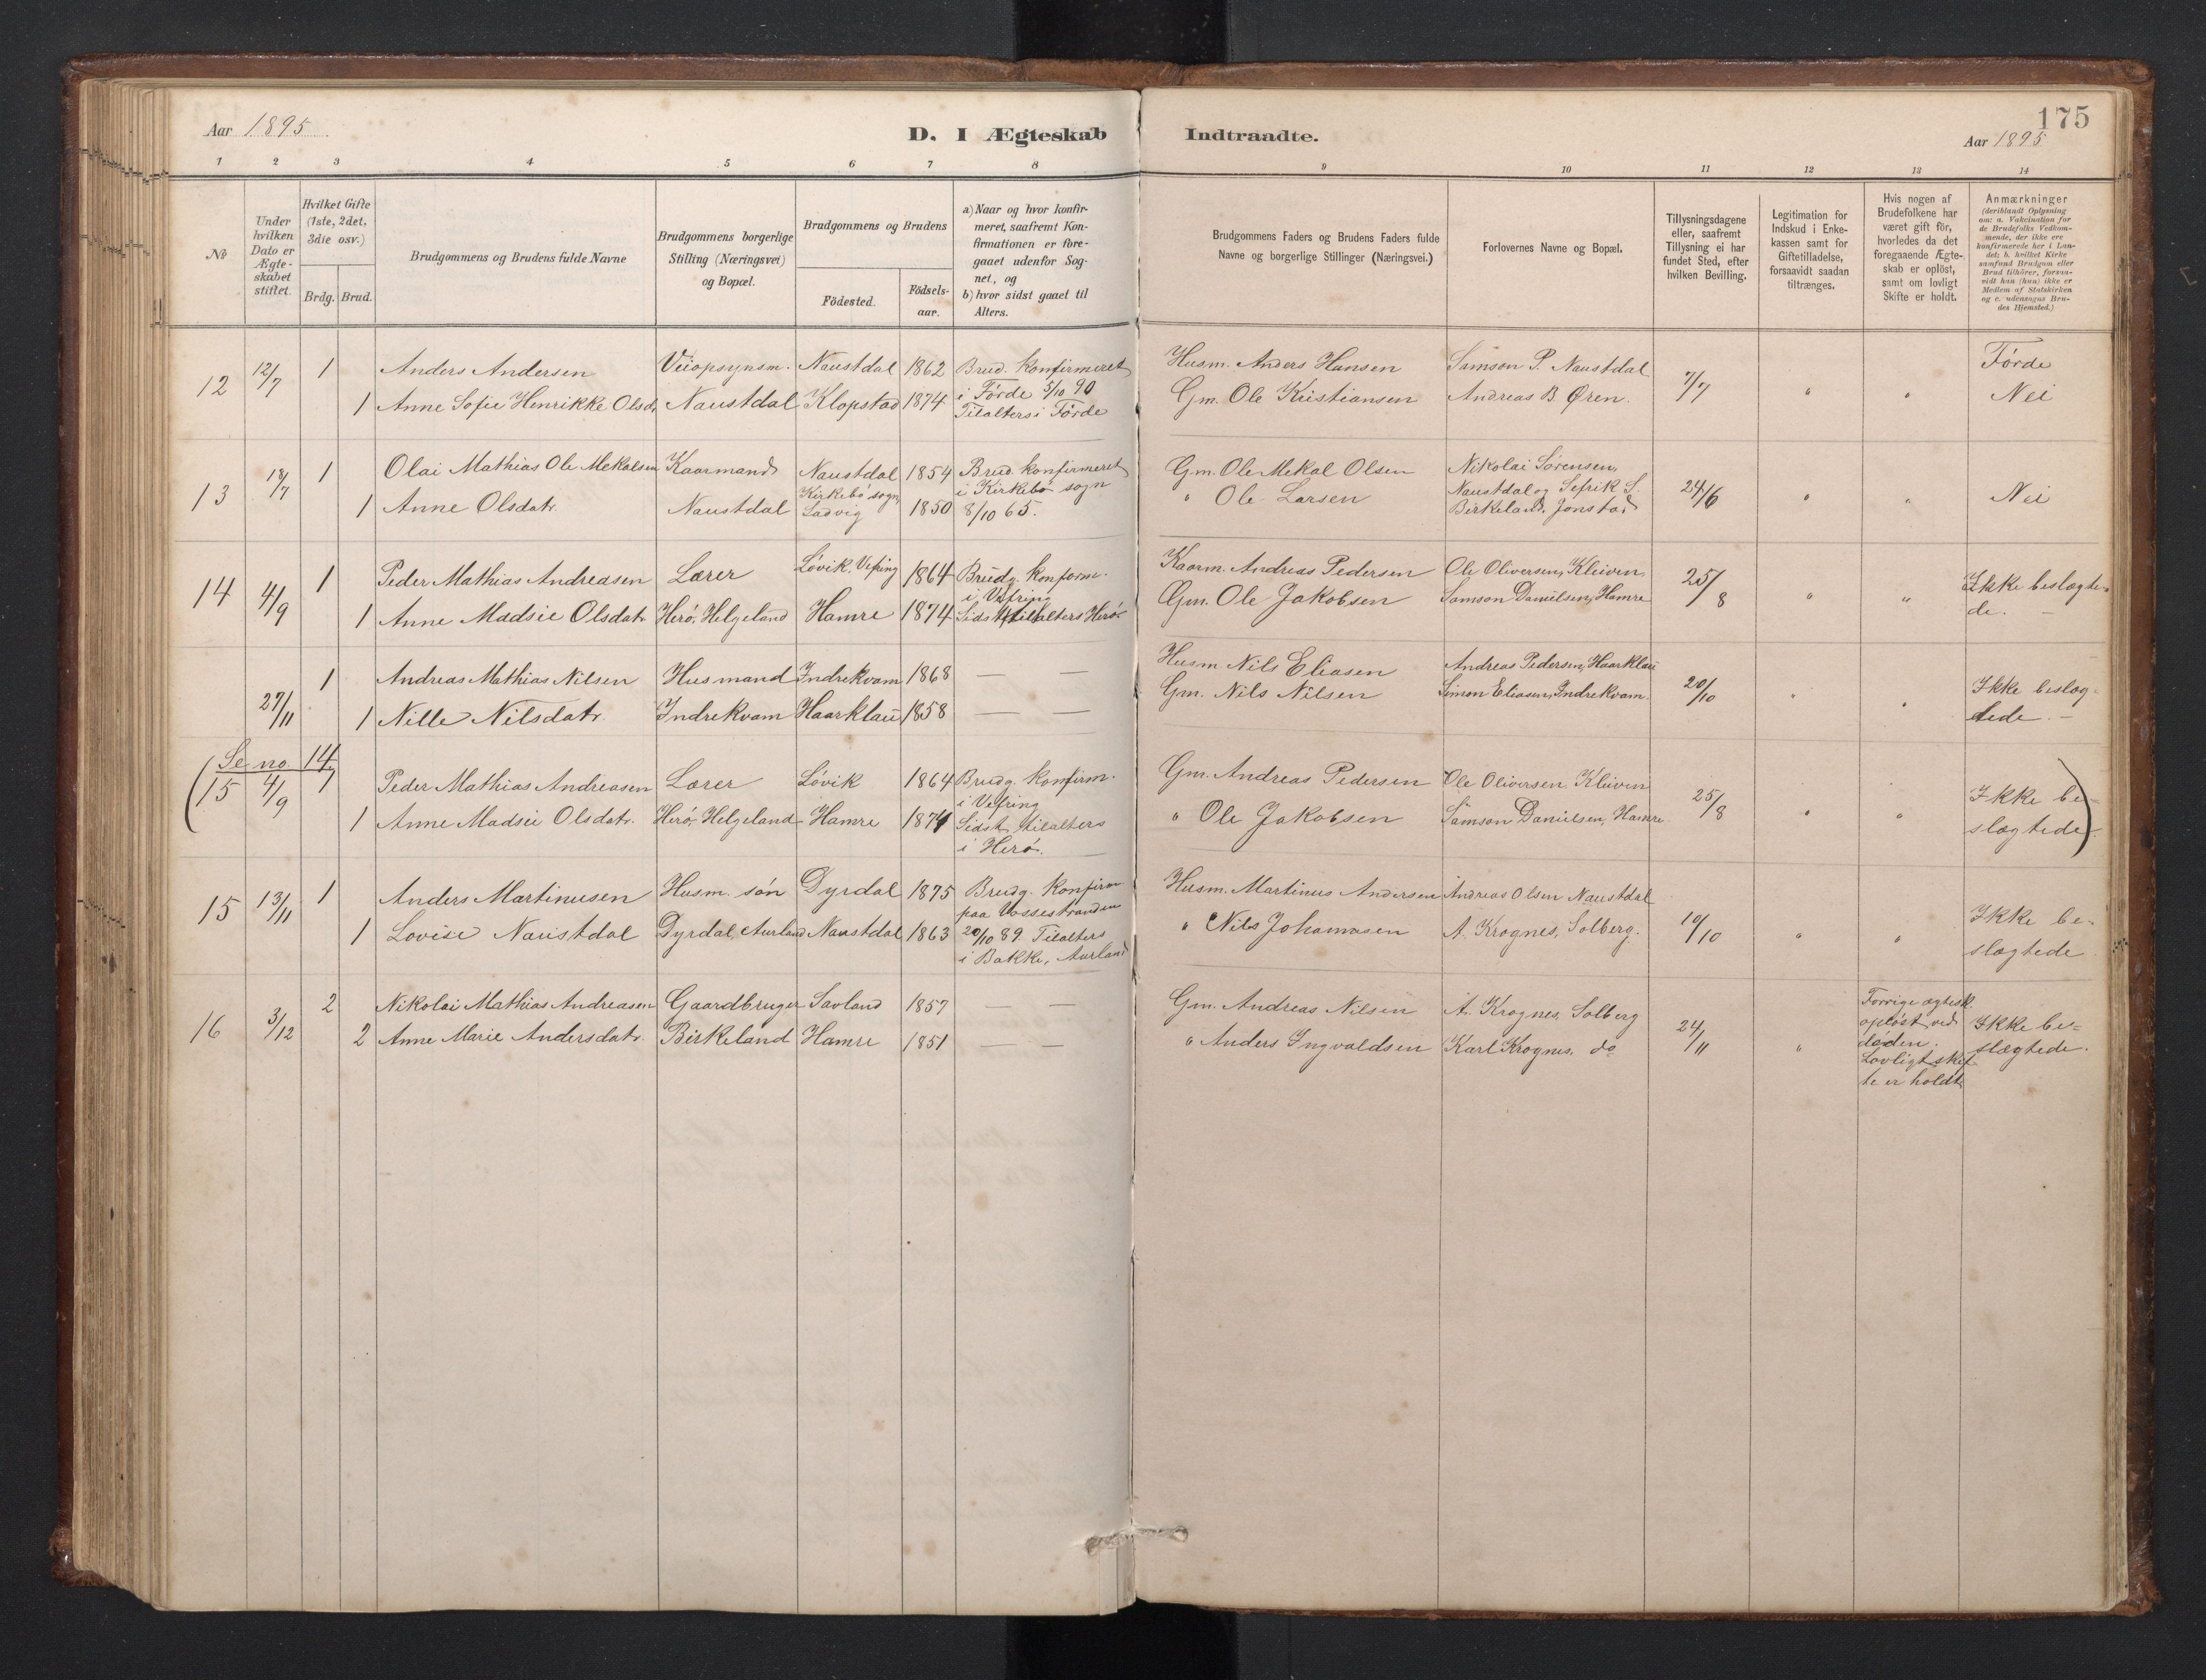 Aar 1895
D. I Ægteskab
Indtraadte.
175
Aar 1895
1 2 3 4 5 6 7 8 9 10 11 12 13 14
No
Under hvilken Dato er Ægte-skabet stiftet.
Hvilket Gifte (1ste, 2det, 3die osv.)
Brdg. Brud.
Brudgommens og Brudens fulde Navne
Brudgommens borgerlige
Stilling (Næringsvei)
og Bopæl.
Brudgommens og Brudens
Födested.
Födsels-
aar.
a) Naar og hvor konfir-
meret, saafremt Kon-
firmationen er fore-
gaaet udenfor Sog-
net, og
b) hvor sidst gaaet til
Alters.
Brudgommens Faders og Brudens Faders fulde
Navne og borgerlige Stillinger (Næringsvei.)
Forlovernes Navne og Bopæl.
Tillysningsdagene
eller, saafremt
Tillysning ei har
fundet Sted, efter
hvilken Bevilling.
Legitimation for
Indskud i Enke-
kassen samt for
Giftetilladelse,
forsaavidt saadan
tiltrænges.
Hvis nogen af
Brudefolkene har
været gift för,
hvorledes da det
foregaaende Ægte-
skab er oplöst,
samt om lovligt
Skifte er holdt.
Anmærkninger
(deriblandt Oplysning
om: a. Vakcination for
de Brudefolks Vedkom-
mende, der ikke ere
konfirmerede her i Lan-
det; b. hvilket Kirke
samfund Brudgom eller
Brud tilhörer, forsaa-
vidt han (hun) ikke er
Medlem af Statskirken
og c. udensogns Bru-
des Hjemsted.)
12 12/7 1 Anders Andersen Veiopsynsm. Naustdal 1862 Brud. konfirmeret Husm. Anders Hansen Samson P. Naustdal 7/7 " " Förde
1 Anne Sofie Henrikke Olsdr. Naustdal Klopstad 1874 i Förde 5/10 90 Gm. Ole Kristiansen Andreas B. Øren. Nei
Tilalters i Förde
13 18/7 1 Olai Mathias Ole Mekalsen Kaarmand Naustdal 1854 Brud. konfirmeret Gm. Ole Mekal Olsen Nikolai Sörensen, 24/6 " " Nei
1 Anne Olsdatr. Naustdal Kirkebö sogn, Ladvig 1850 i Kirkebö sogn " Ole Larsen Naustdal og Sefrik S.
8/10 65. Birkeland, Jonstad
14 4/9 1 Peder Mathias Andreasen Lærer Lövik, Vefring 1864 Brudg. konform. Kaarm. Andreas Pedersen Ole Oliversen, Kleiven 25/8 " " Ikke beslægte-
i Vefring
1 Anne Madsie Olsdatr. Herö, Helgeland Hamre 1874 Sidst tilalters Herö. Gm. Ole Jakobsen Samson Danielsen, Hamre de. —
27/11 1 Andreas Mathias Nilsen Husmand Indrekvam 1868 — — Husm Nils Eliasen Andreas Pedersen, Haarklau 20/10 " " Ikke beslæg-
1 Nille Nilsdatr. Indrekvam Haarklau 1858 — — Gm. Nils Nilsen Simon Eliasen, Indrekvam. tede. —
(Se no 14.
15 4/9 1 Peder Mathias Andreasen Lærer Lövik 1864 Brudg. konfirm. Gm. Andreas Pedersen Ole Oliversen, Kleiven 25/8 " " Ikke be-
i Vefring
1 Anne Madsie Olsdatr. Herö, Helgeland Hamre 1874 Sidst tilalters " Ole Jakobsen Samson Danielsen, Hamre slægtede)
i Herö.
15 13/11 1 Anders Martinusen Husm. sön Dyrdal 1875 Brudg. Konfirm Husm. Martinus Andersen Andreas Olsen Naustdal 10/10 " " Ikke be-
paa Vossestranden
1 Lovise Naustdal Dyrdal, Aurland Naustdal 1863 20/10 89. Tilalters " Nils Johannesen A. Krognes, Solberg. slægtede
i Bakke, Aurland
16 3/12 2 Nikolai Mathias Andreasen Gaardbruger Savland 1857 — — Gm. Andreas Nilsen A. Krognes, Solberg 24/11 " Forrige ægtesk.
oplöst ved Ikke be-
2 Anne Marie Andersdatr. Birkeland Hamre 1851 — — " Anders Ingvaldsen Karl Krognes, do döden. slægtede.
Lovligt skif-
te er holdt.